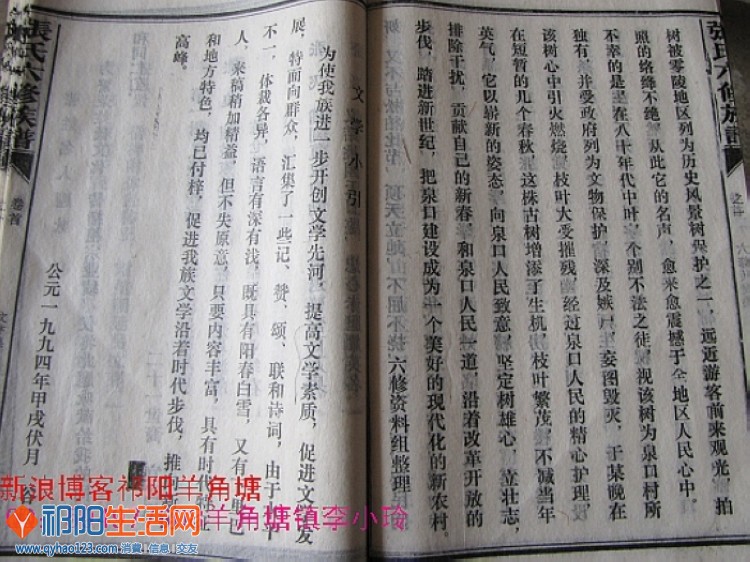 張氏六修族譜
树被零陵地区列为历史风景树保护之一，远近游客前来观光、拍
照的络绎不绝。从此它的名声，愈来愈震撼于全地区人民心中。
不幸的是在八十年代中叶，个别不法之徒
视该树为泉口村所
独有，并受政府列为文物保护，深及嫉
妄图毁灭，于某晚在
该树心中引火燃烧，枝叶大受摧残。经过泉口人民的精心护理，
在短暂的几个春秋
这株古树增添了生机，枝叶繁茂，不减当年
英气，它以崭新的姿态，向泉口人民致意，坚定树雄心，立壮志，
排除干扰，贡献自己的新春，和泉口人民一道，沿着改革开放的
步伐，踏进新世纪，把泉口建设成为一个美好的现代化的新农村。
六修资料组整理
文学小引
为使我族进一步开创文学先河，提高文学素质，促进文
发
展，特面向群众，汇集了一些记、赞、颂、联和诗词，由于
不一，体裁各异，语言有深有浅，既具有阳春白雪，又有
巴
人，来稿稍加精益，但不失原意，只要内容丰富，具有时代
和地方特色，均已付梓，促进我族文学沿着时代步伐，推向
高峰。
公元一九九四年甲戌伏月
張氏六修族譜
卷首
新浪博客祁阳羊角塘
羊角塘镇李小玲
祁阳生活网
www.qyhao123.com 消费 信息 交友